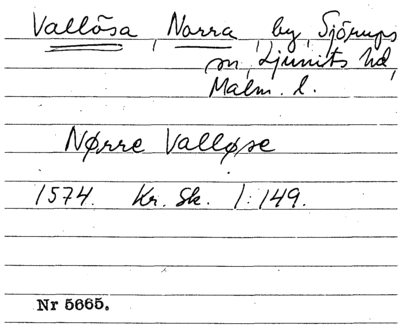 Vallösa, Norra, by, Sjörups
sn, Ljunits hd,
Malm. l.
Nørre Valløse
1574. Kr. Sk. 1:149.
Nr 5665.